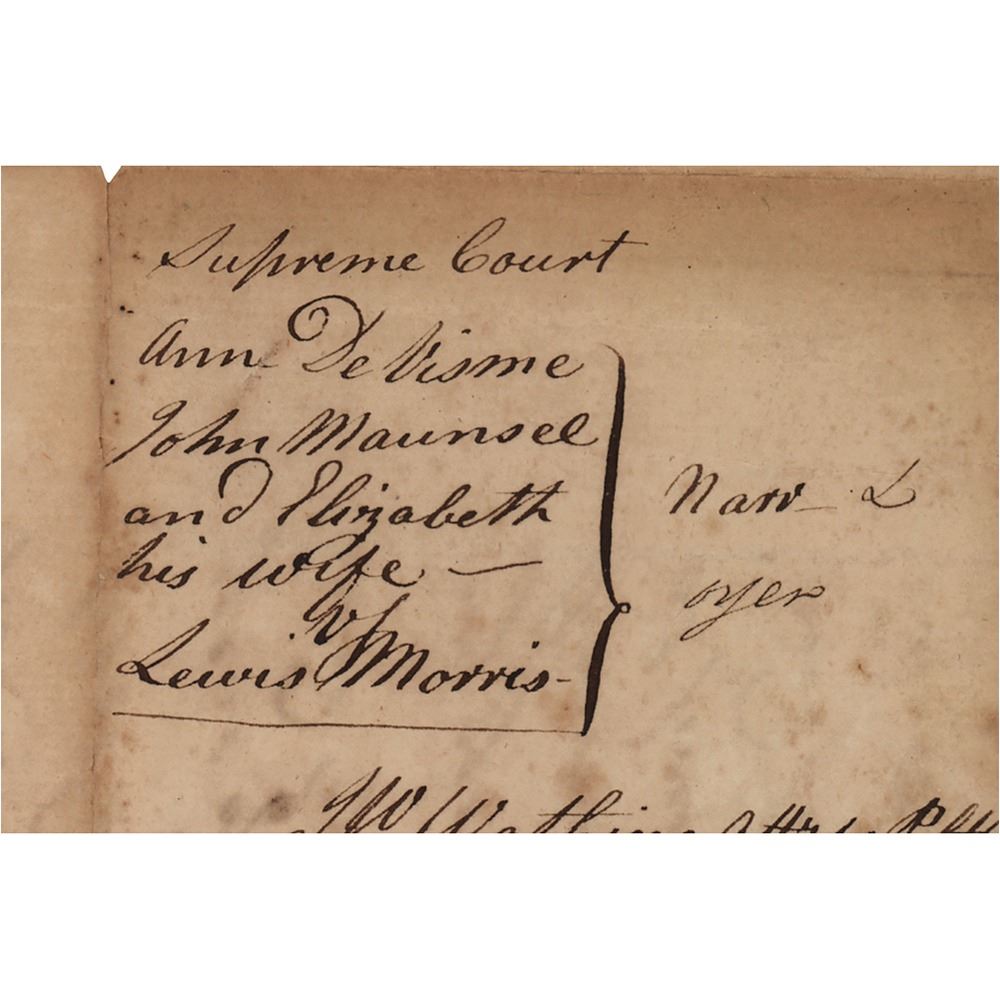 Supreme Court
Ann DeVisme
John Maunsel
and Elizabeth
his wife —
vs
Lewis Morris -
Narr - &
oyer